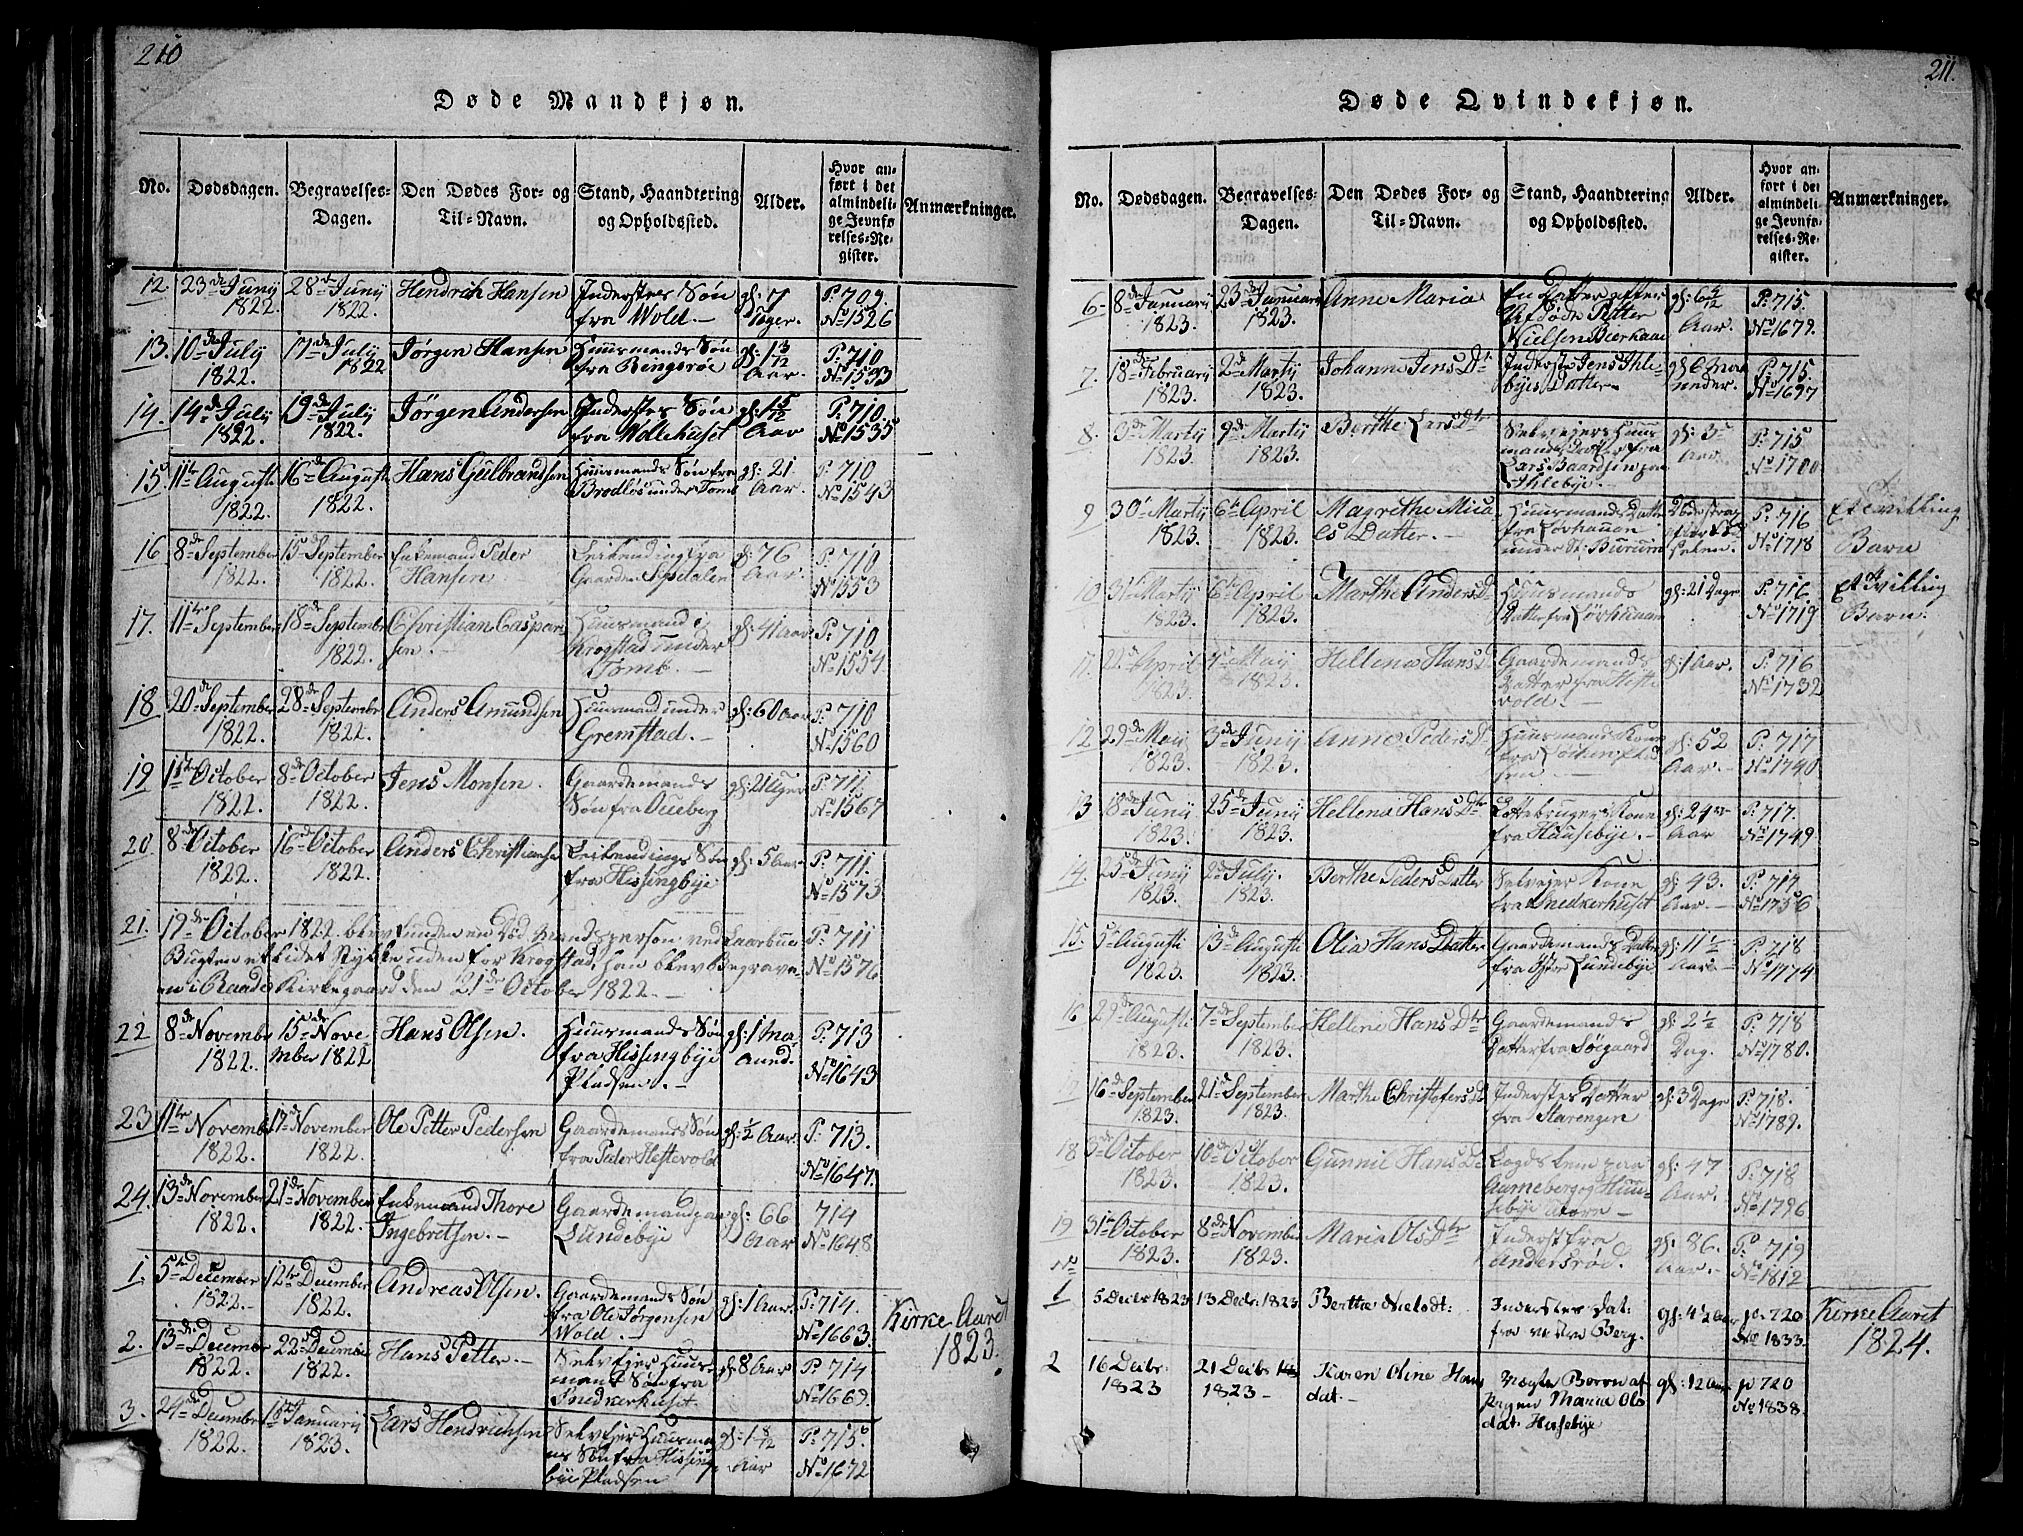 210
Døde Mandkjøn.
No. Dødsdagen. Begravelses-Dagen. Den Dødes For- og Til-Navn. Stand, Haandtering og Opholdssted. Alder. Hvor anført i det almindelige Jevnførelses-Register. Anmærkninger.
12. 23de Juny 1822. 28de Juny 1822. Hendrich Hansen Inderstes Søn fra Wold. gl: 7 Uger. P. 709. No 1526
13. 10de July 1822. 17de July 1822 Jørgen Hansen Huusmands Søn fra Bengsrøe gl: 1 3/12 Aar. P: 710. No 1533
14. 14de July 1822. 19de July 1822. Jørgen Andersen Inderstes Søn fra Woltehuset gl: 1 5/12 Aar P. 710. No 1535
15. 11te Augusti 1822. 16de Augusti 1822. Hans Gulbrandsen Huusmands Søn fra Brodløs under Tomb gl: 21 Aar. P. 710. No 1543
16 8de September 1822. 15de September 1822. Enkemand Peder Hansen Gaarden Spetalen gl: 76 Aar. P: 710 No 1553
17. 11te September 18de September 1822. Christian Caspersen. Huusmand i Krogstad under Tomb. gl: 41 Aar P: 710 No 1554
18 20de September 1822. 28de September 1822. Anders Amundsen Huusmand under Gremstad. gl: 60 Aar P: 710 No 1560
19 1ste October 1822. 8de October 1822. Jens Monsen. Gaardemands Søn fra Oueberg gl: 21 Uger P: 711. No 1567
20 8de October 1822. 16de October 1822. Anders Christiansen Søn fra Hissingbye gl: 5 Aar P: 711. No 1573
21. 19de October 1822. blev funden en Død Mands person ved
Bugten et lidet Stykke uden for Krogstad, han blev Begraven
i Raade Kirkegaard den 21de October 1822. P: 711 No 1576
22. 8de November 1822. 15de November 1822 Hans Olsen. Huusmands Søn fra Hissingbye Pladsen. gl: 1 Maaned. P: 713 No 1643
23 11te November 1822. 17de November 1822. Ole Petter Pedersen Gaardemands Søn fra Peder Hestevold gl: 1/2 Aar. P: 713. No 1647.
24. 13de November 1822. 21de November 1822. Enkemand Thore Ingebretsen. Gaardemand paa Lundebye gl: 66 Aar 714 No 1648
1. 5te December 1822. 12te December 1822. Andreas Olsen. Gaardemands Søn fra Ole Jørgensen Wold. gl: 1 Aar. P: 714. No 1663. Kirke Aaret 1823.
2. 13de December 1822. 22de December 1822. Hans Petter. Selvejer Huusmands Søn fra Snedkerhuset gl: 8 Aar P: 714 No 1669.
3. 24de December 1822. 1ste January 1823. Lars Hendrichsen Selvejer Huusmands Søn fra Hissingbye Pladsen gl: 1 8/12 Aar P: 715 No 1672
211.
Døde Qvindekjøn.
No. Dødsdagen. Begravelses-Dagen. Den Dødes For- og Til-Navn. Stand, Haandtering og Opholdssted. Alder. Hvor anført i det almindelige Jevnførelses-Register. Anmærkninger.
6. 8de January 1823. 23de January 1823. Anne Maria En Datter efter Afdøde Petter Nielsen gl: 6 Aar. P: 715. No 1679.
7. 18de February 1823. 2de Marty 1823. Johanne Jens Dtr Inderste Jens Datter gl: 6 P: 715 No 1697
8. 3de Marty 1823. 9de Marty 1823. Berthe Lars Dtr Selvejer Huusmands Datter fra Lars Baardsen paa Athlebye. gl: 3 Aar. P: 715 No 1700
9 30te Marty 1823. 6te April 1823. Magrethe Micaels Datter. Huusmands Datter fra under St: Burum P: 716 No 1718 Et Tvilling Barn
10. 31te Marty 1823. 6te April 1823. Marthe Anders Dtr Huusmands Datter fra gl: 21 Dage P: 716. No 1719 Et Tvilling Barn.
11. April 1823. May 1823. Hellena Hans Dtr Gaardemands Datter fra Hestevold. gl: 1 Aar. P: 716 No 1732
12 29de May 1823. 3de Juny 1823. Anne Peders Dtr Huusmands Kone fra gl: 52 Aar. P: 717 No 1740
13 18de Juny 1823. 25de Juny 1823. Hellena Hans Dtr Kone fra Huusebye. gl: 24 Aar P: 717. No 1749.
14. 25de Juny 1823. 2de July. 1823. Berthe Peders Datter Selvejer Kone fra Snedkerhuset gl: 43. Aar. P: 717 No 1756
15. 5te Augusti 1823. 13de Augusti 1823. Olia Hans Datter Gaardemands Datter fra Lundebye gl: 11 1/2 Aar P: 718 No 1774
16 29de Augusti 1823. 7de September 1823. Hellene Hans Dtr Gaardemands Datter fra Sørgaard gl: 2 1/2 Dag. P: 718 No 1780.
17 16de September 1823. 21de September 1823. Marthe Christofers Dtr Inderstes Datter fra Starengen gl: 3 Dage P: 718. No 1789.
18 3de October 1823. 10de October 1823. Gunnil Hans Dtr Lem paa Aarneberg og Huusebye gl: 47 Aar. P: 718 No 1796
19 31te October 1823. 8de November 1823. Maria Ols Dtr Inderst fra Andersrød. gl: 86. Aar. P: 719 No 1812
No
1 5 Decbr 1823 13 Decbr: 1823 Berthe Nielsdt: Inderstes Dat: fra vestre Berg. gl: 4 1/2 Aar p: 720 No 1833. Kirke Aaret 1824.
2 16 Decbr: 1823 21 Decbr 1823 Karen Oline Hansdat Barn af Pigen Maria Olsdat: Hussebye gl: 12 Aar p 720 No 1838.